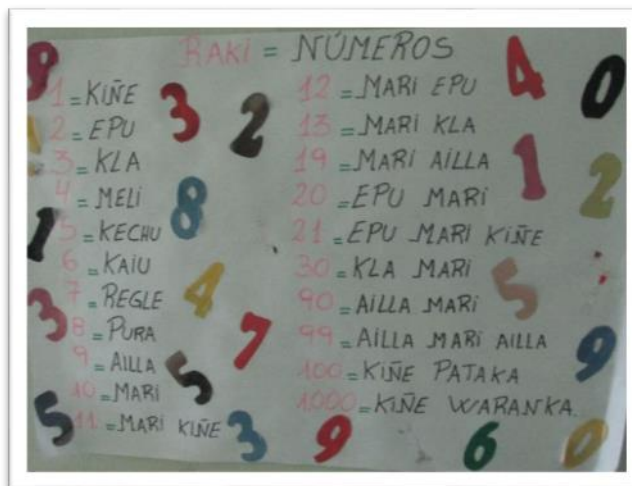 RAKI = NÚMEROS
1 = KIÑE
2 = EPU
3 = KLA
4 = MELI
5 = KECHU
6 = KAIU
7 = REGLE
8 = PURA
9 = AILLA
10 = MARI
11 = MARI KIÑE
12 = MARI EPU
13 = MARI KLA
19 = MARI AILLA
20 = EPU MARI
21 = EPU MARI KIÑE
30 = KLA MARI
90 = AILLA MARI
99 = AILLA MARI AILLA
100 = KIÑE PATAKA
1000 = KIÑE WARANKA.
9
3
2
4
0
1
2
8
1
4
5
3
7
5
9
5
3
9
6
0